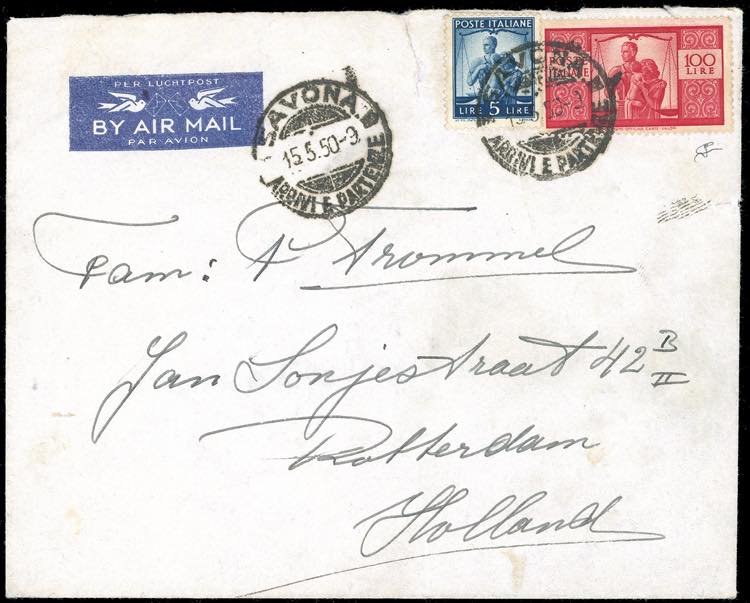 PER LUCHTPOST
BY AIR MAIL
PAR AVION
SAVONA
15.5.50-9
ARRIVI E PARTENZE
POSTE ITALIANE
LIRE 5 LIRE
SAVONA
ARRIVI E PARTENZE
POSTE
ITALIANE
100
LIRE
Fam: P Trommel
Jan Sonjestraat 42 B
II
Rotterdam
Holland